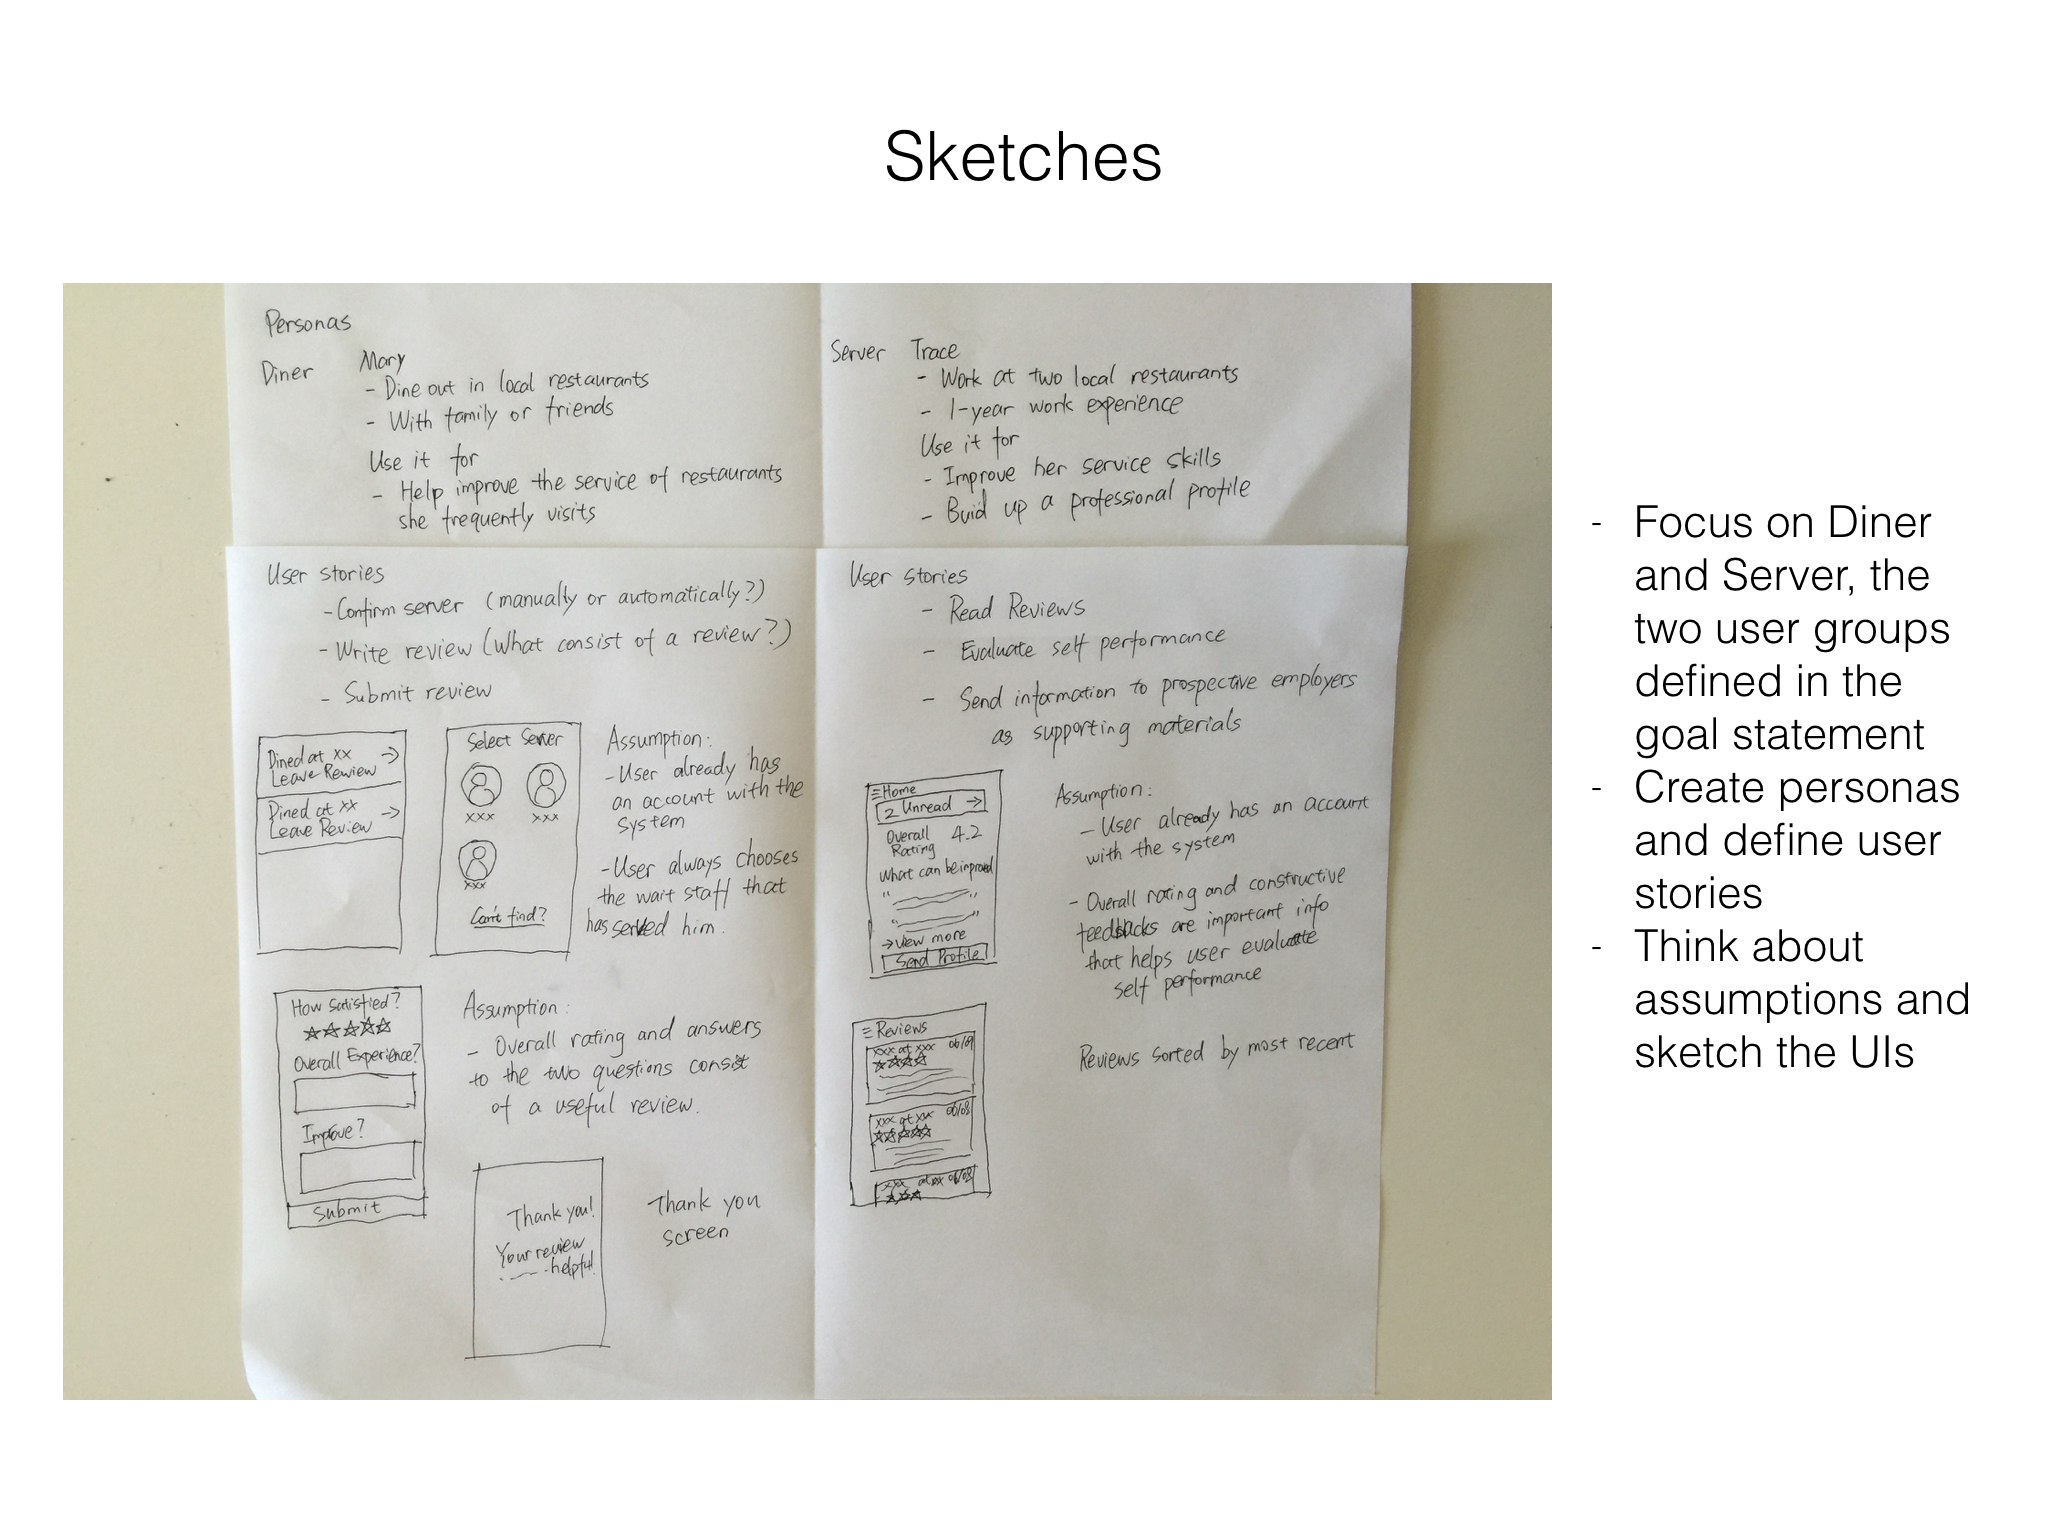 Sketches
Personas
Diner Mary
- Dine out in local restaurants
- With family or friends
Use it for
- Help improve the service of restaurants
she frequently visits
Server Trace
- Work at two local restaurants
- 1-year work experience
Use it for
- Improve her service skills
- Buid up a professional profile
User stories
- Confirm server (manually or automatically?)
- Write review (What consist of a review?)
- Submit review
Dined at xx →
Leave Review
Dined at xx →
Leave Review
Select Server
xxx xxx
xxx
Can't find?
Assumption:
- User already has
an account with the
system
- User always chooses
the wait staff that
has served him.
How satisfied?
☆☆☆☆☆
Overall Experience?
Improve?
Submit
Assumption:
- Overall rating and answers
to the two questions consist
of a useful review.
Thank you!
Your review
helpful!
Thank you
screen
User stories
- Read Reviews
- Evaluate self performance
- Send information to prospective employers
as supporting materials
Home
2 Unread →
Overall 4.2
Rating
What can be
→ View more
Send Profile
Assumption:
- User already has an account
with the system
- Overall rating and constructive
feedbacks are important info
that helps user evaluate
self performance
Reviews
xxx at xxx 06/09
☆☆☆☆
xxx at xxx 06/08
☆☆☆☆☆
xxx at xx 06/08
☆☆☆
Reviews sorted by most recent
- Focus on Diner
and Server, the
two user groups
defined in the
goal statement
- Create personas
and define user
stories
- Think about
assumptions and
sketch the UIs